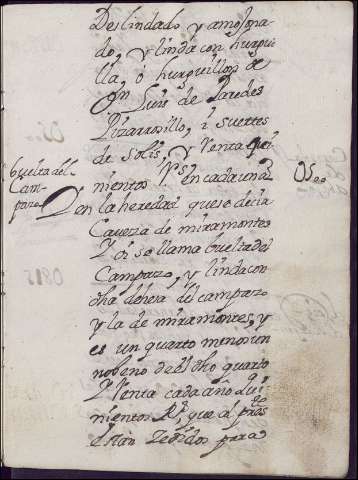 Deslindado y amojona
do, y linda con hurqui
lla, o hurquillon de
Dn Luis de Paredes
Pizarrosillo, i suertes
de Solis, y Venta qui
nientos Rs en cada un a
0500
buelta del
Cam-
pazo
En la heredad que se decia
Caveza de miramontes
Y oi se llama buelta del
Campazo, y linda con
dha dehesa del campazo
y la de miramontes, y
es un quarto menos un
nobeno de el dho quarto
Y Venta cada año Qui
nientos Rs, que al pres
te
estan Zedidos para